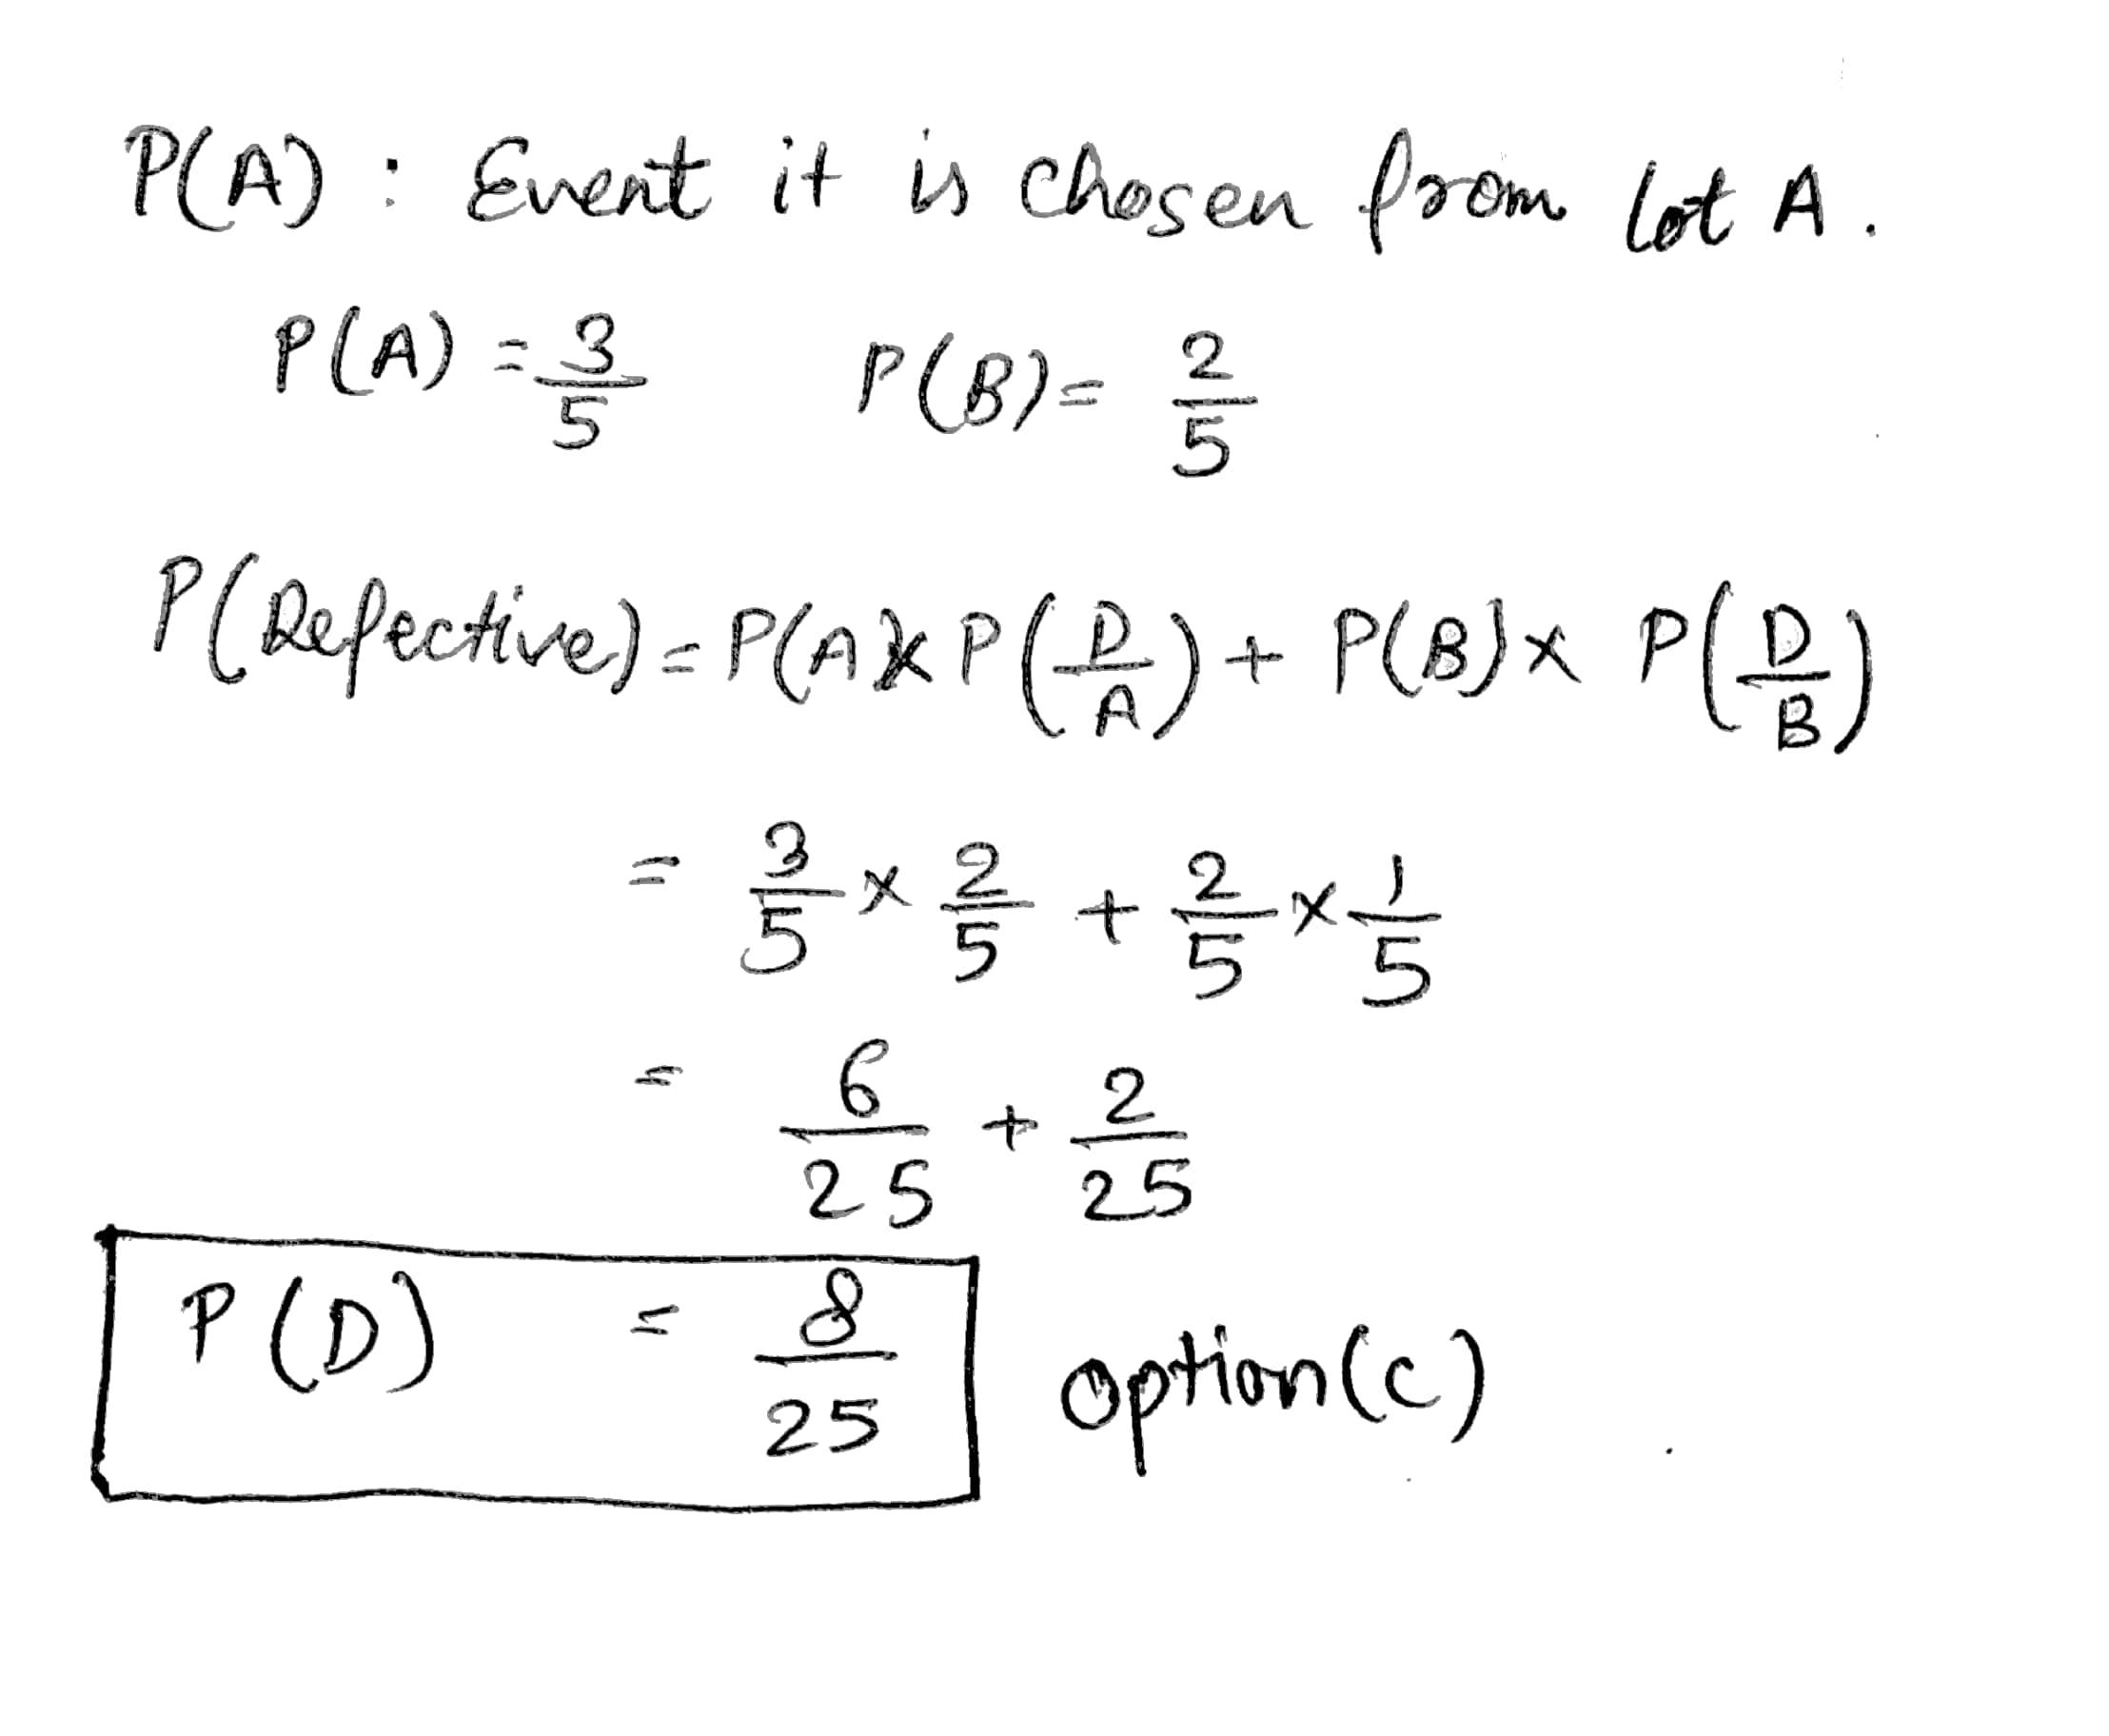 P(A) : Event it is chosen from lot A.
P(A) = 3/5 P(B) = 2/5
P(Defective) = P(A) x P(D/A) + P(B) x P(D/B)
= 3/5 x 2/5 + 2/5 x 1/5
= 6/25 + 2/25
P(D) = 8/25 option(c)